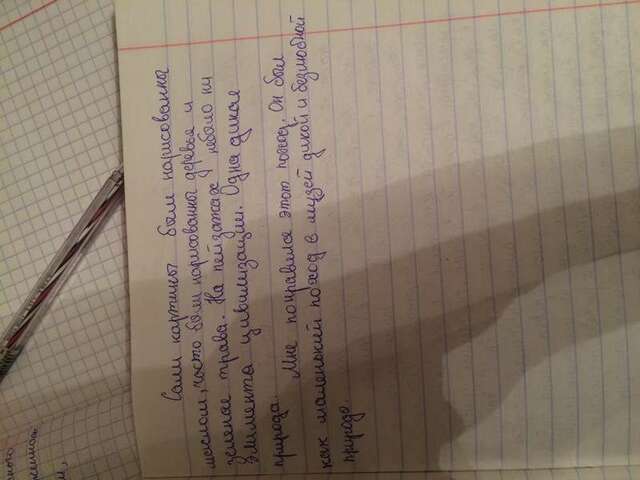 сного
женност
м,
Сами картины были нарисованны
маслом, часто были нарисованны деревья и
зеленые трава. На пейзажах небыло ни
элимента цивилизации. Одна дикая
природа.
Мне понравился этот поход. Он был
как маленький поход в музей дикой и безлюбной
природо.